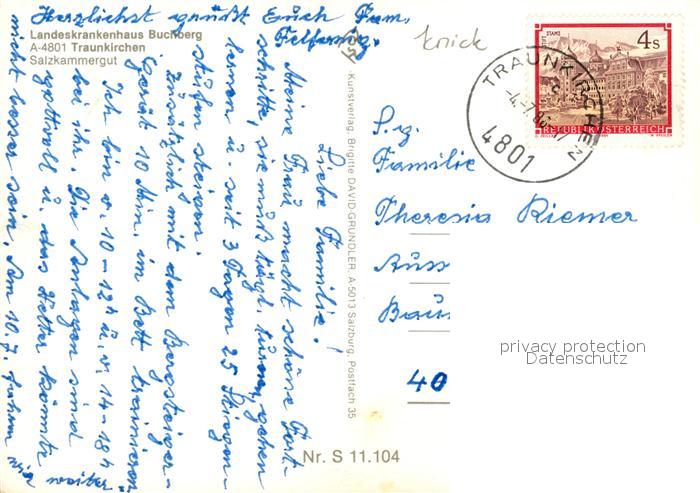 Landeskrankenhaus Buchberg
A-4801 Traunkirchen
Salzkammergut
Liebe Familie!
Meine Frau macht schöne Fort-
schritte, sie muß tägl. turnen, gehen
lernen u. seit 3 Tagen 25 Stiegen-
stufen steigen.
Zusätzlich mit dem Bergsteiger-
Gerät 10 Min. im Bett trainieren.
Ich bin v. 10-12h u. v. 14-18h
bei ihr. Die Anlagen sind
gottvoll u. das Wetter könnte
nicht besser sein. Am 10.7. fahren wir weiter
Herzlichst grüßt Euch Fam.
Kunstverlag, Brigitte DAVID-GRÜNDLER, A-5013 Salzburg, Postfach 35
Nr. S 11.104
knick
STIFT STAMS
4 S
REPUBLIK ÖSTERREICH
TRAUNKIRCHEN
4801
Familie
Theresia Riemer
40
privacy protection
Datenschutz